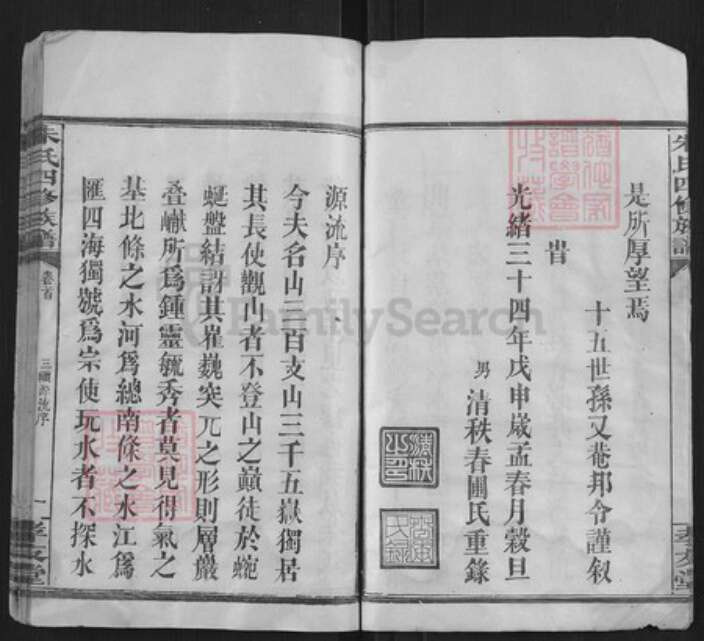 朱氏四修族譜
是所厚望焉
十五世孫又菴邦令謹叙
旹
光緒三十四年戊申歲孟春月穀旦
男清秩春圃氏重錄
清秩之印
源流序
今夫名山三百支山三千五嶽獨居
其長使觀山者不登山之巔徒於蜿
蜒盤結訝其崔巍突兀之形則層巖
疊巘所為鍾靈毓秀者莫見得氣之
基北條之水河為總南條之水江為
匯四海獨號為宗使玩水者不探水
朱氏四修族譜
卷首
三續源流序
一
孝友堂
FamilySearch